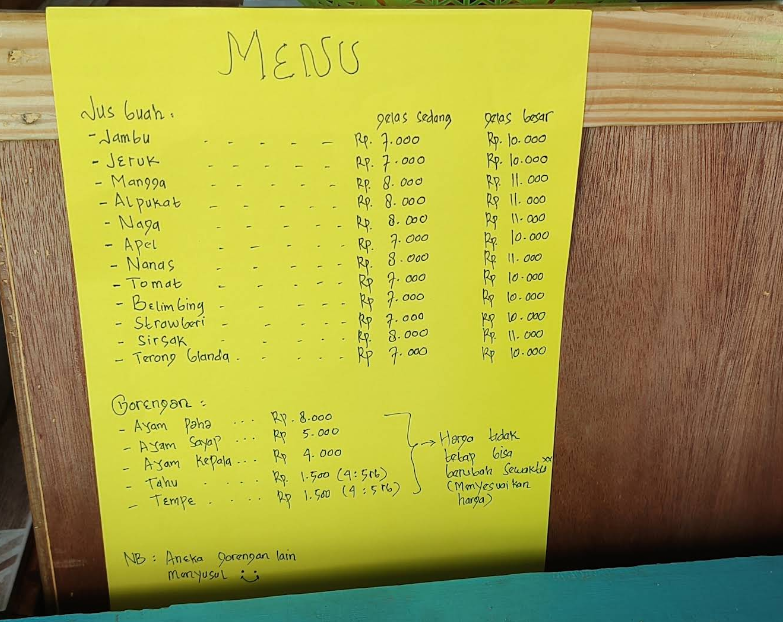 MENU
Jus buah : gelas sedang gelas besar
- Jambu - - - - Rp. 7.000 Rp. 10.000
- Jeruk - - - - Rp. 7.000 Rp. 10.000
- Mangga - - - - - Rp. 8.000 Rp. 11.000
- Alpukat - - - - - Rp. 8.000 Rp. 11.000
- Naga - - - - - Rp. 8.000 Rp. 11.000
- Apel - - - - - Rp. 7.000 Rp. 10.000
- Nanas - - - - - Rp. 8.000 Rp 11.000
- Tomat - - - - - Rp 7.000 Rp 10.000
- Belimbing - - - - Rp 7.000 Rp 10.000
- Strawberi - - - - - Rp 7.000 Rp 10.000
- Sirsak - - - - - Rp. 8.000 Rp 11.000
- Terong blanda . - - - - Rp 7.000 Rp 10.000
Gorengan :
- Ayam Paha ... Rp. 8.000
- Ayam Sayap ... Rp 5.000
- Ayam Kepala ... Rp 4.000
- Tahu .... Rp. 1.500 (4 : 5rb)
- Tempe .... Rp 1.500 (4 : 5rb)
→ Harga tidak
tetap bisa
berubah sewaktu"
(Menyesuaikan
harga)
NB : Aneka gorengan lain
menyusul